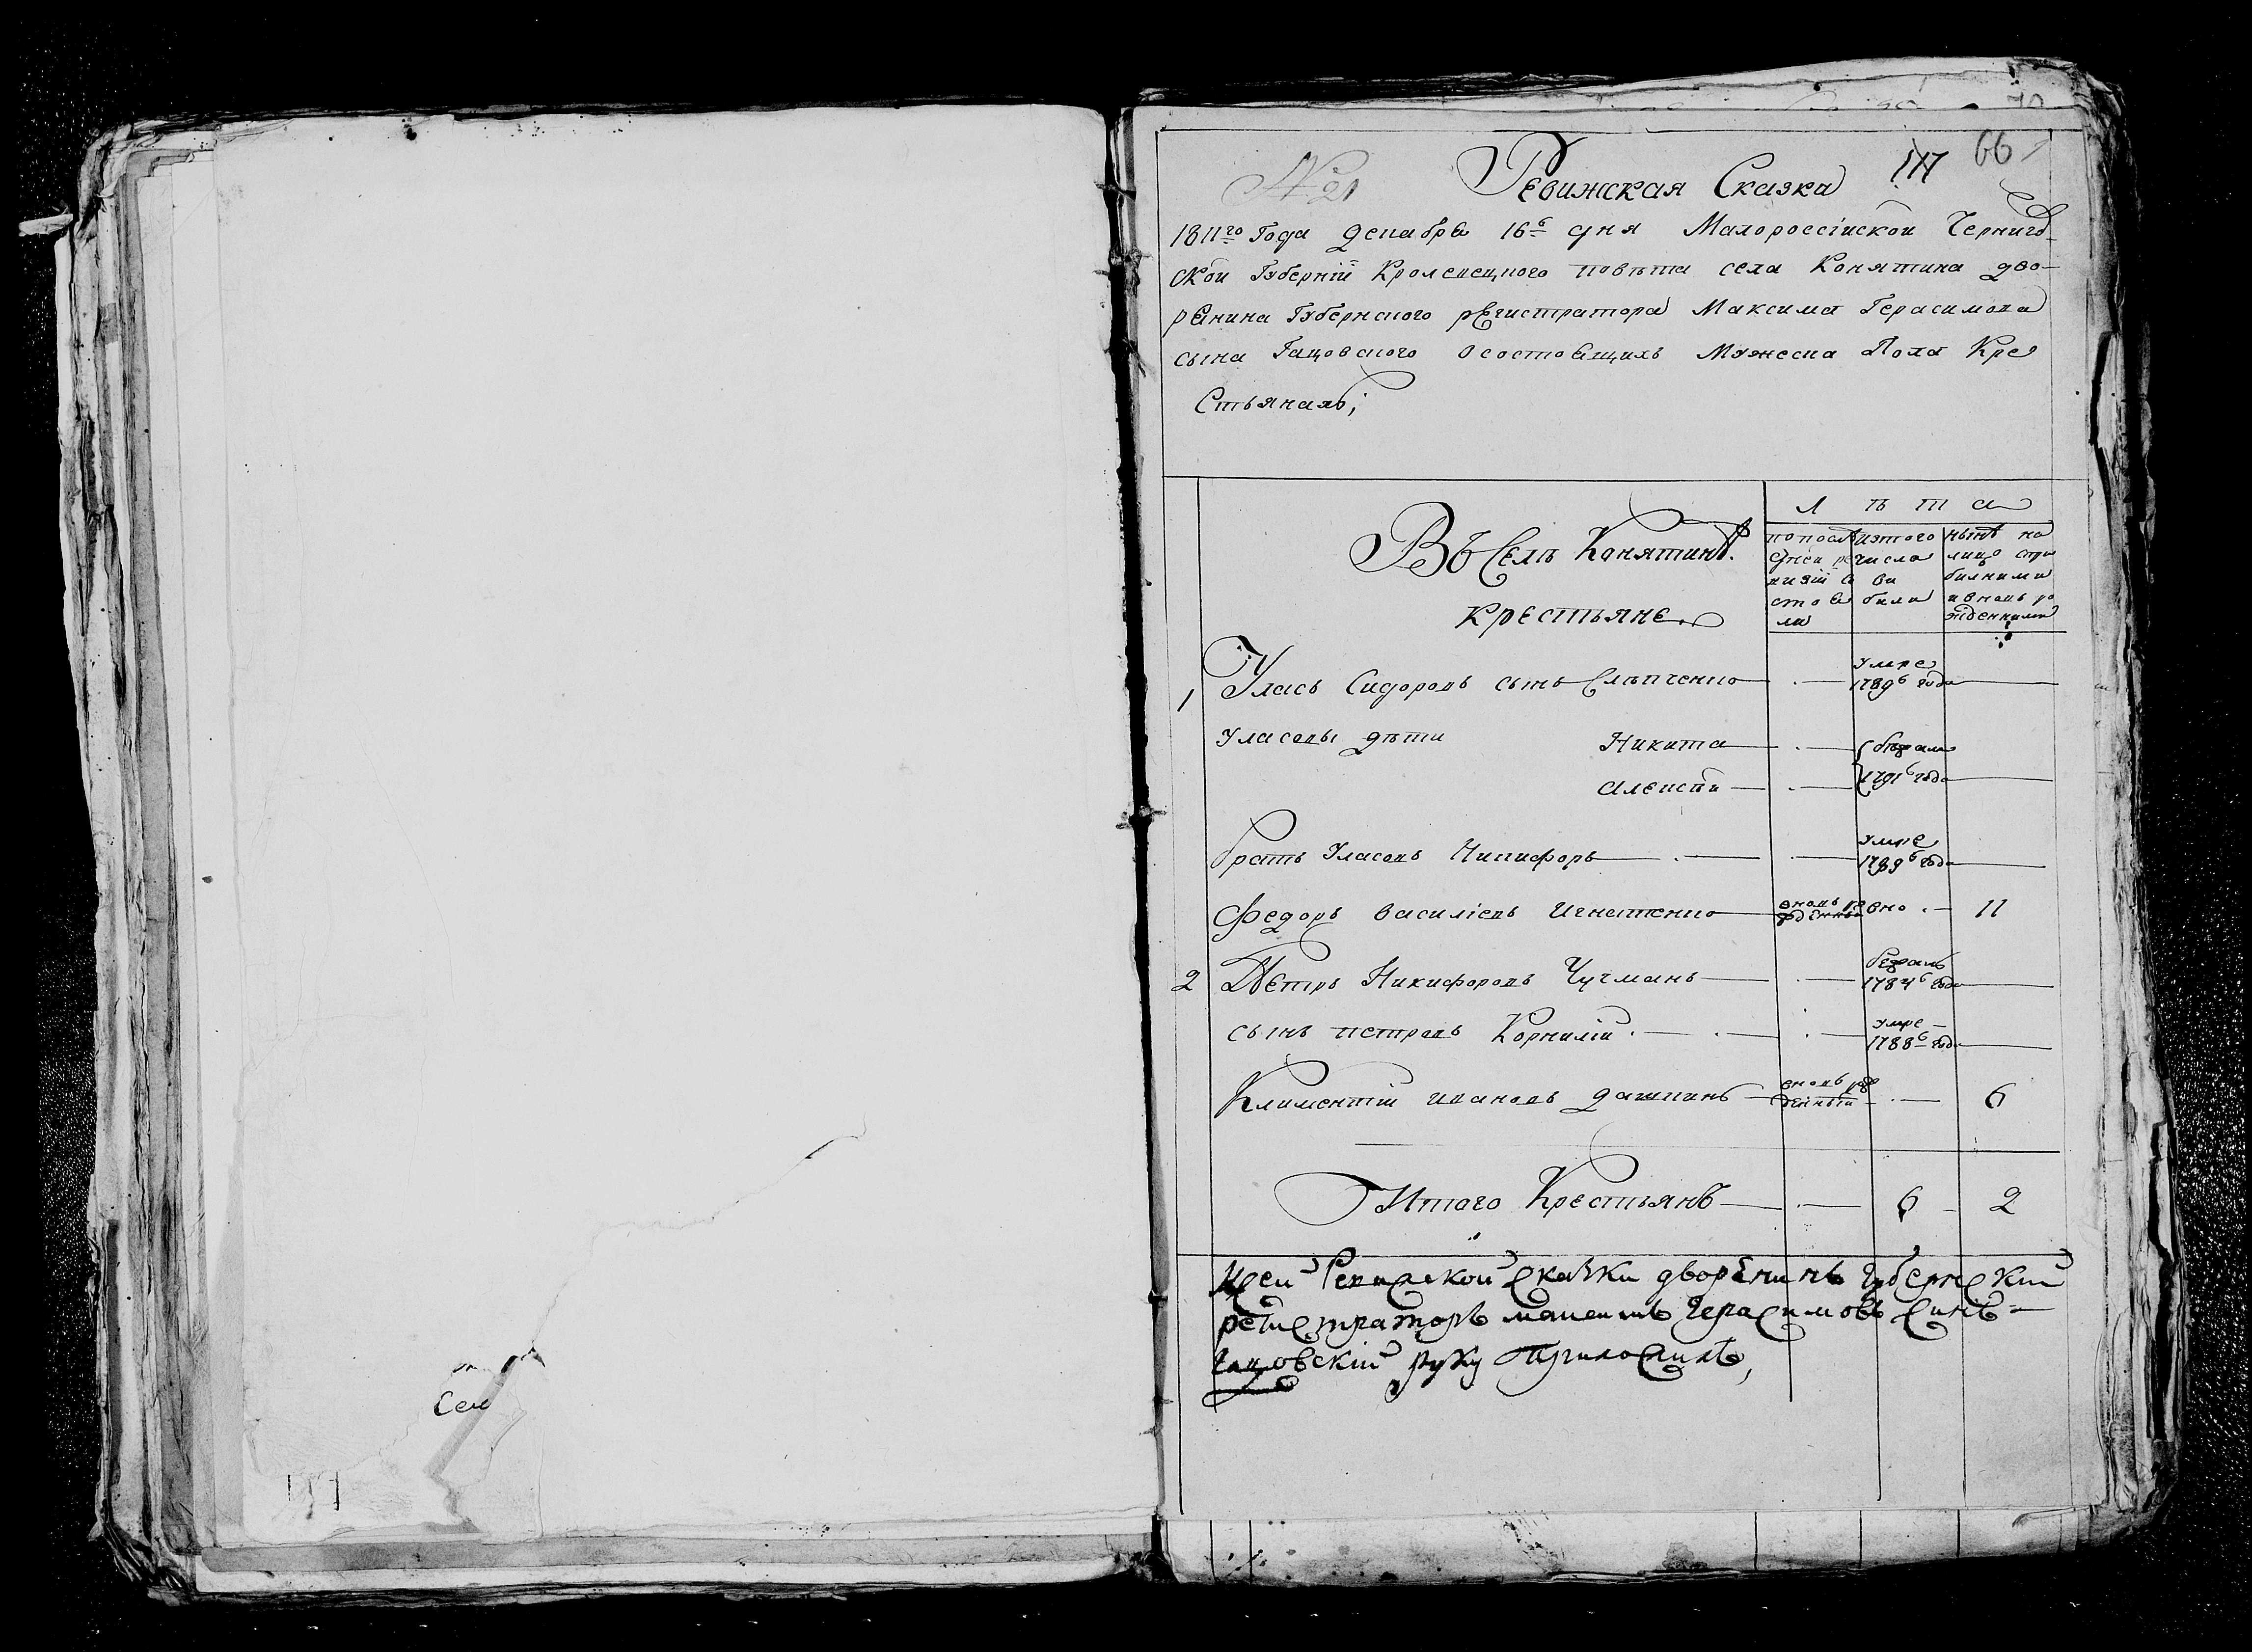 № 21 Ревижская Сказка 117 66
1811го Года Декабра 16б дня Малороссiйской Черниго-
ской Губернiй Кролевецкого повѣта села Конятина дво-
рѣнина Губернского регистратора Максима Герасимова
сына Гацовского о состоящихъ Мужеска Пола Кре
стьянахъ;
Лѣта
Въ Селѣ Конятинѣ.
крестьяне.
по послѣ
дней ре
визiй со
стоя
ли
изтого
числа
ви
били
нынѣ на
лицо стри
билними
ивновь ро
жденними
1 Уласъ Сидоровъ сынъ Слѣпченко умре 1789б года
Уласовы дѣти Никита бѣжали
Алексѣй 1791б года
братъ Уласовъ Никифоръ умре 1799б года
Федоръ василiевъ Игнатенко вновь ро жденны но 11
2 Петръ Никифоровъ Чучманъ бежалъ 1784б года
сынъ петровъ Корнилiй умре 1788б года
Климентiй ивановъ дашкинъ вновь рож денный 6
Итого Крестьянъ 6 2
Ксей Ревижской скаЗки дворѣнинъ Губернский
регистраторъ максимъ Герасимовъ синъ
Гацовскiй руку Приложилъ,
Сел